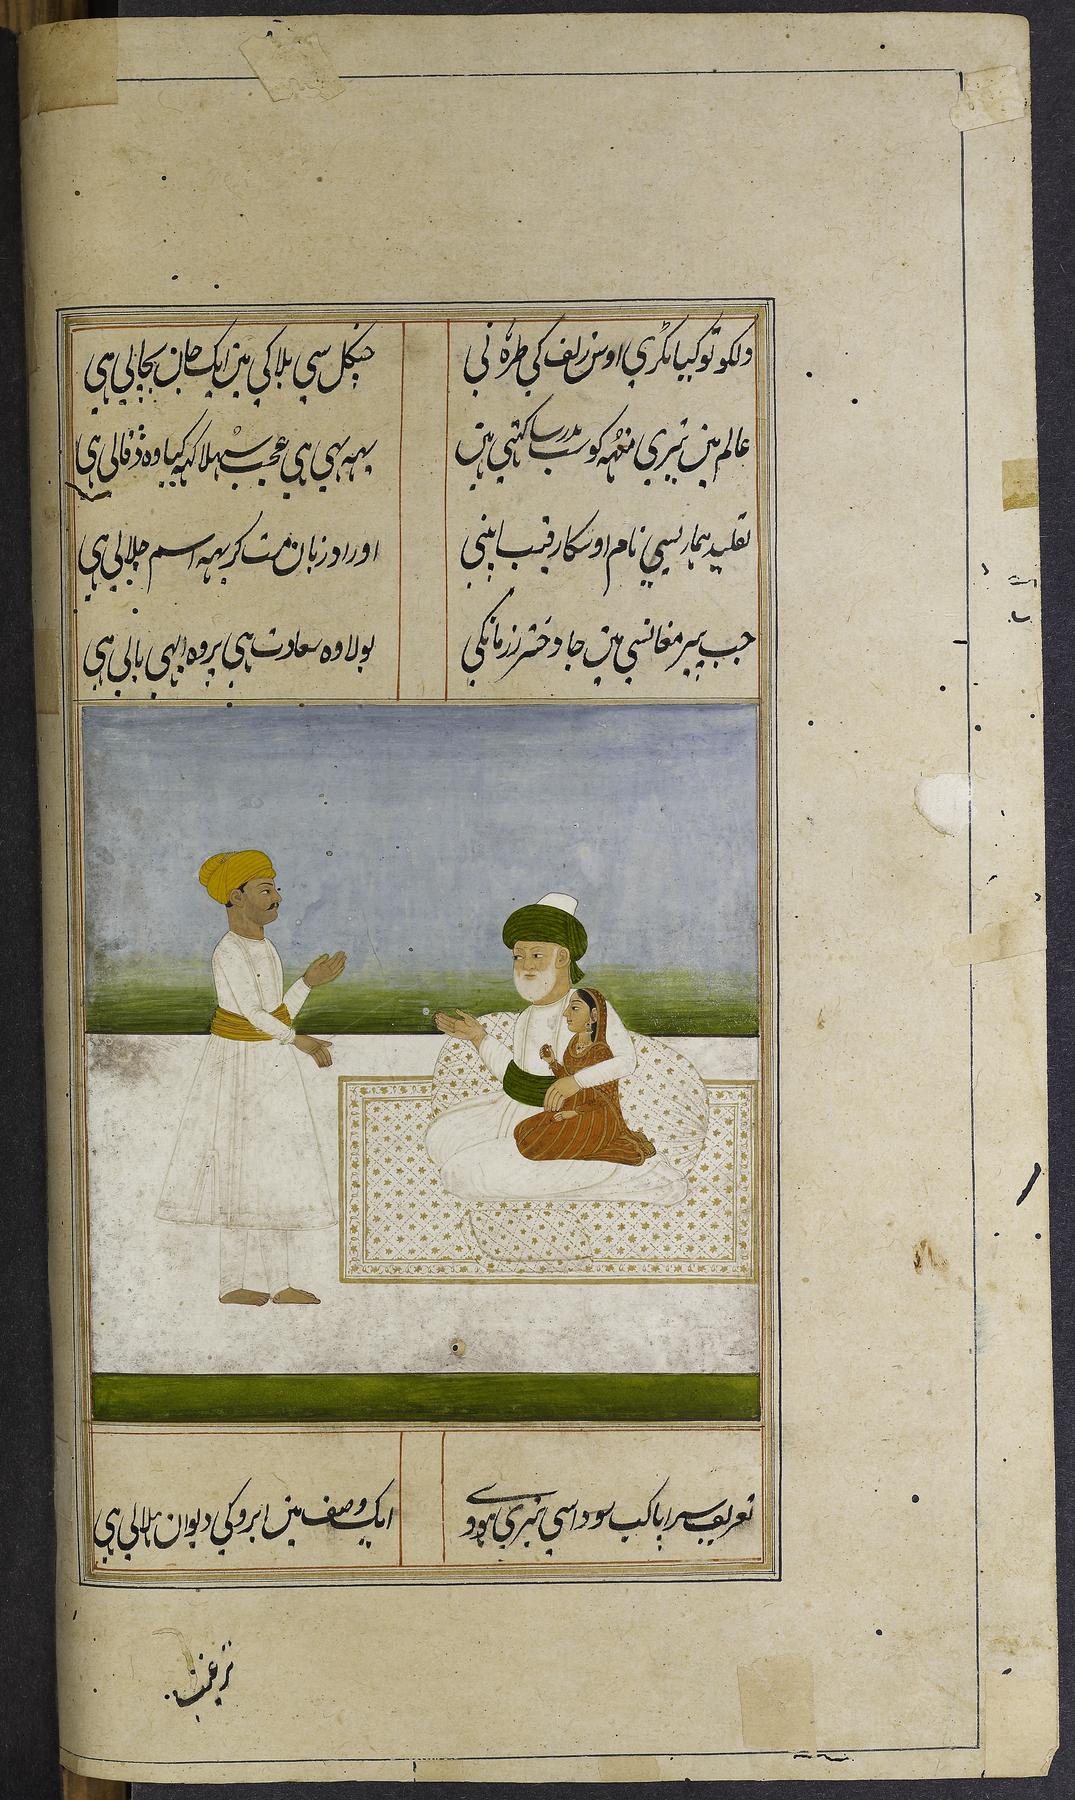 دلکو تو کیا ٹکری اوس زلف کی طرہ نی
جنکل سی بلا کی مین ایک جان بچالی ہی
عالم مین تیری منھہ کو سب بدر سا کہتی ہین
یہہ بہی ہی عجب سہلا کہہ کیا وہ ڈفالی ہی
تقلید ہماریسی نام اوسکا رقیب اپنی
اوراد زبان مت کر یہہ اسم جلالی ہی
جب پیر مغانسی مین جا دختر رز مانکی
بولا وہ سعادت ہی پر وہ ابہی بالی ہی
تعریف سراپا کب سودا سی تیری ہووے
ایک وصف مین ابرو کی دیوان ہلالی ہی